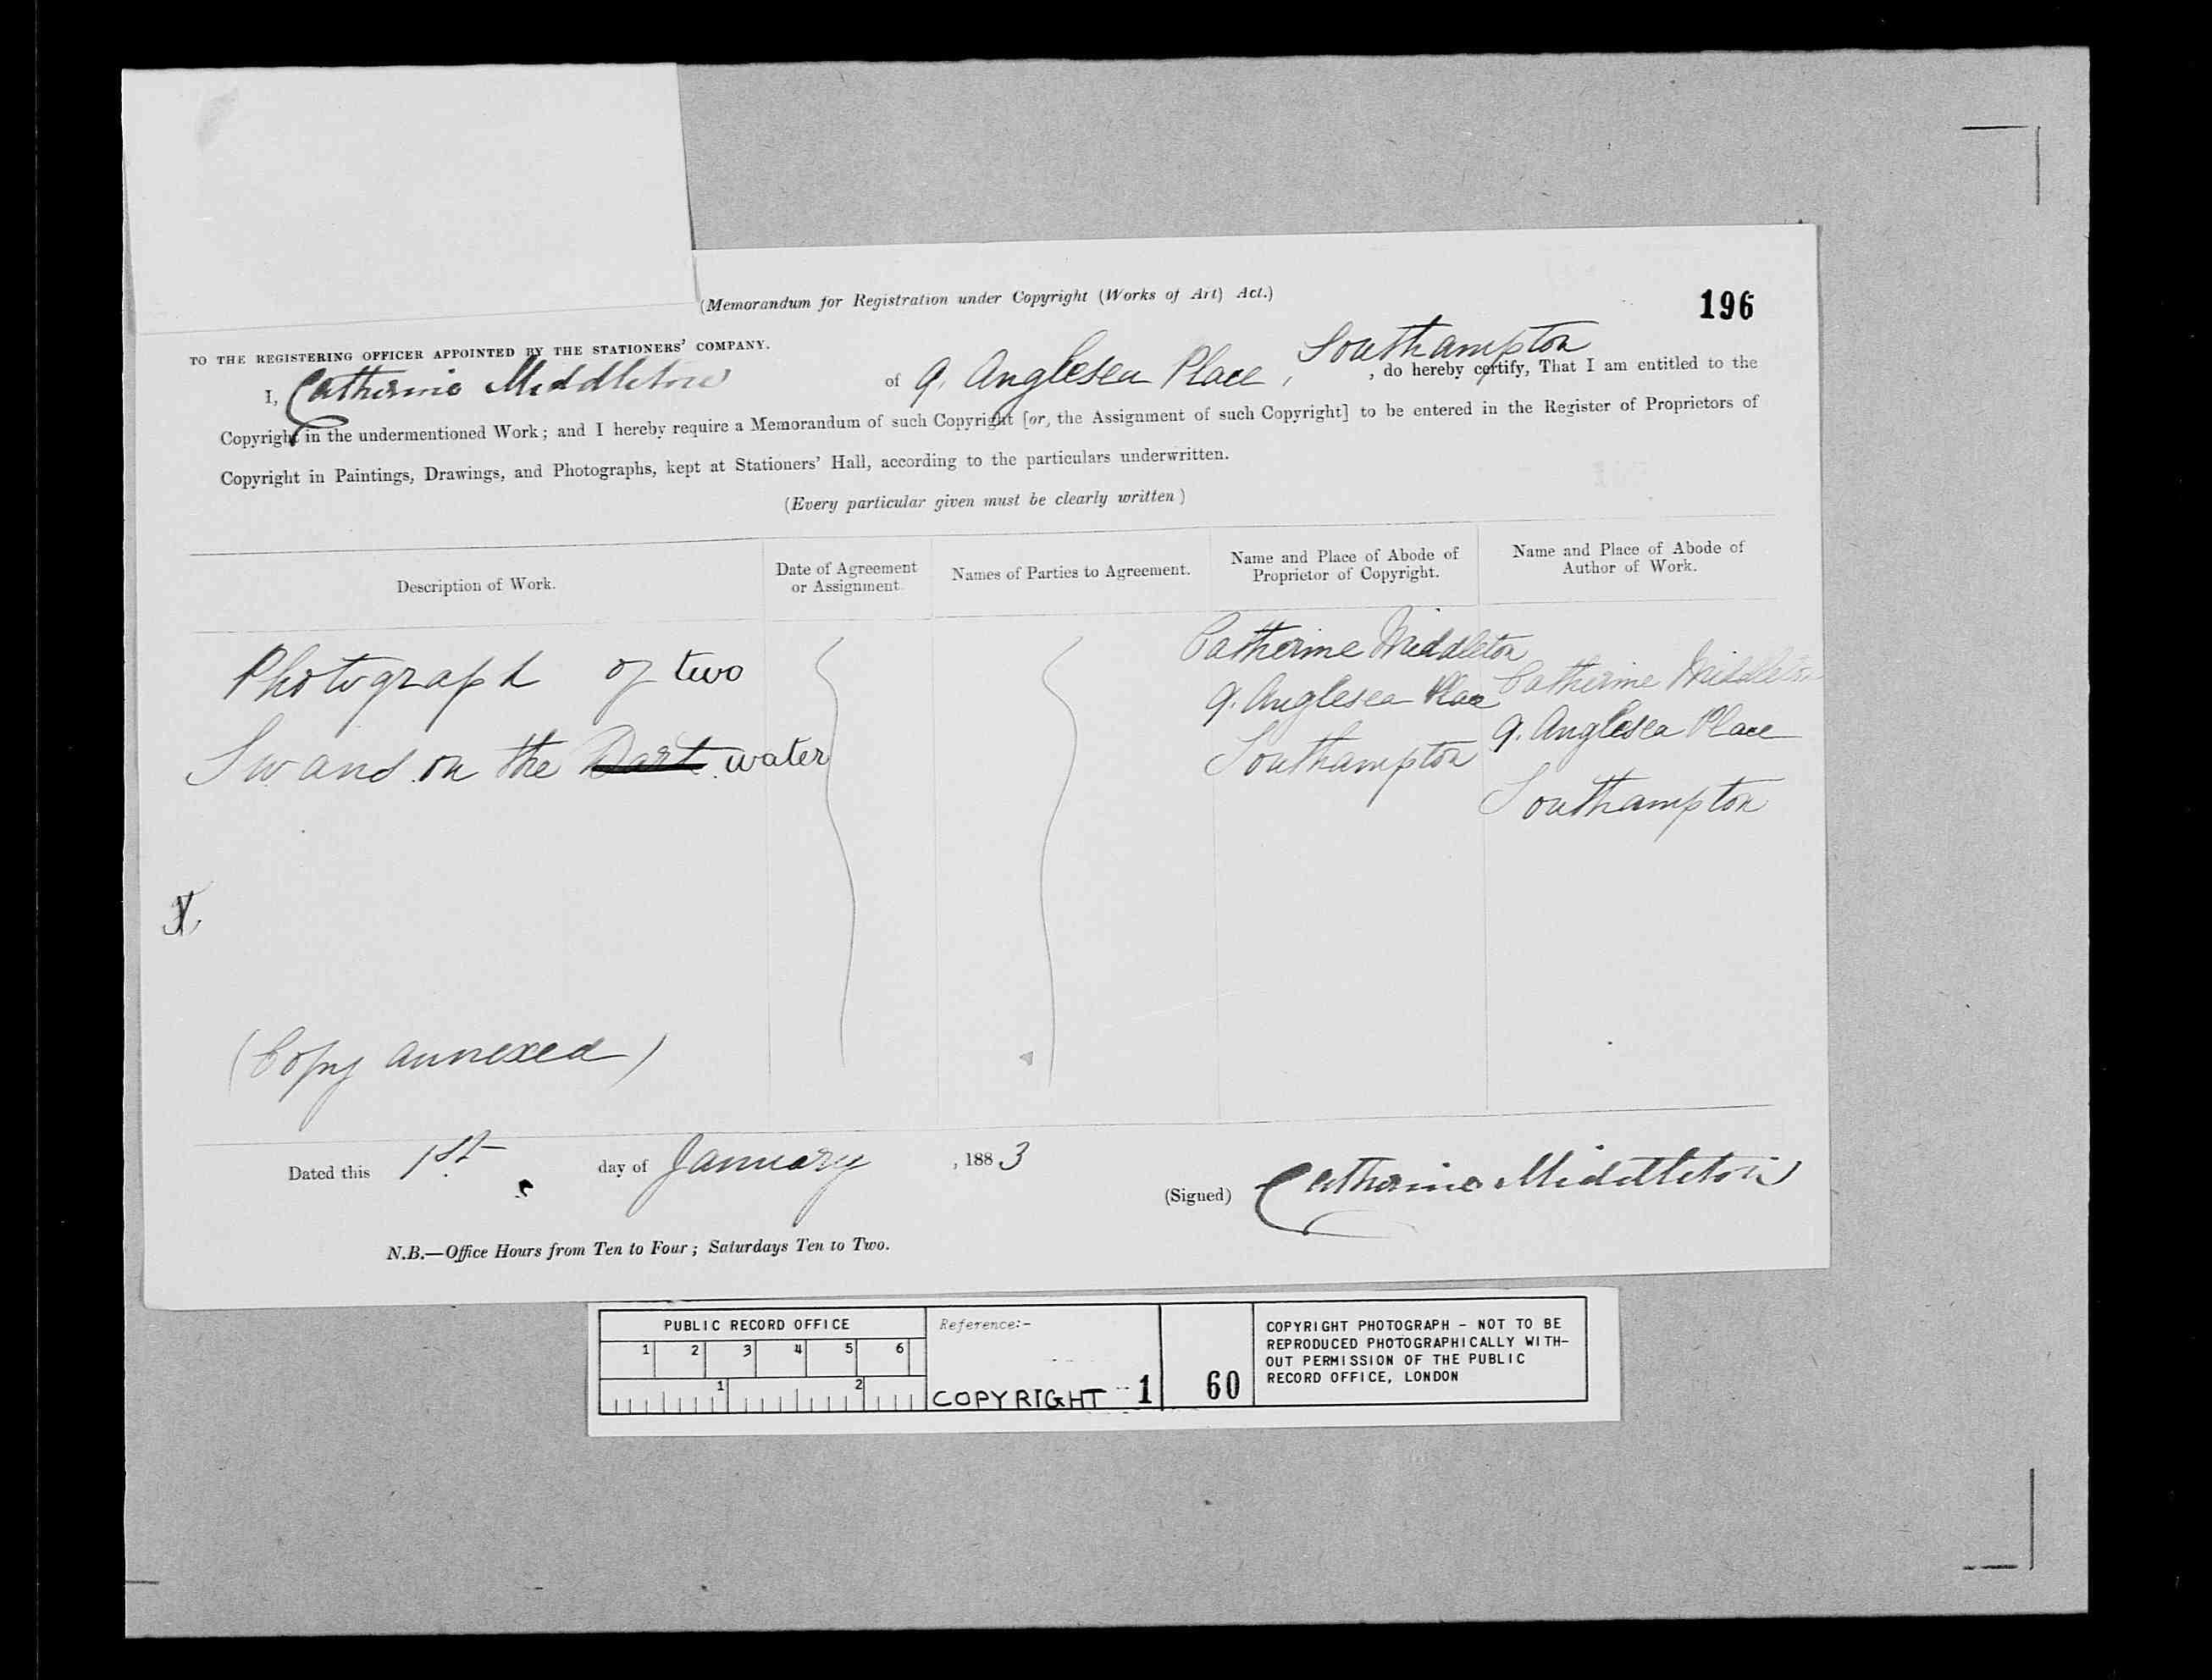 (Memorandum for Registration under Copyright (Works of Art) Act.)
196
TO THE REGISTERING OFFICER APPOINTED BY THE STATIONERS' COMPANY.
I, Catherine Middleton of 9. Anglesea Place, Southampton, do hereby certify, That I am entitled to the
Copyright in the undermentioned Work; and I hereby require a Memorandum of such Copyright [or, the Assignment of such Copyright] to be entered in the Register of Proprietors of
Copyright in Paintings, Drawings, and Photographs, kept at Stationers' Hall, according to the particulars underwritten.
(Every particular given must be clearly written)
Description of Work.
Date of Agreement
or Assignment.
Names of Parties to Agreement.
Name and Place of Abode of
Proprietor of Copyright.
Name and Place of Abode of
Author of Work.
Photograph of two
Swans on the Dart water
(Copy annexed)
Catherine Middleton
9. Anglesea Place
Southampton
Catherine Middleton
9. Anglesea Place
Southampton
Dated this 1st day of January, 1883
(Signed) Catherine Middleton
N.B.—Office Hours from Ten to Four; Saturdays Ten to Two.
PUBLIC RECORD OFFICE
1 2 3 4 5 6
1 2
Reference:-
COPYRIGHT 1
60
COPYRIGHT PHOTOGRAPH - NOT TO BE
REPRODUCED PHOTOGRAPHICALLY WITH-
OUT PERMISSION OF THE PUBLIC
RECORD OFFICE, LONDON